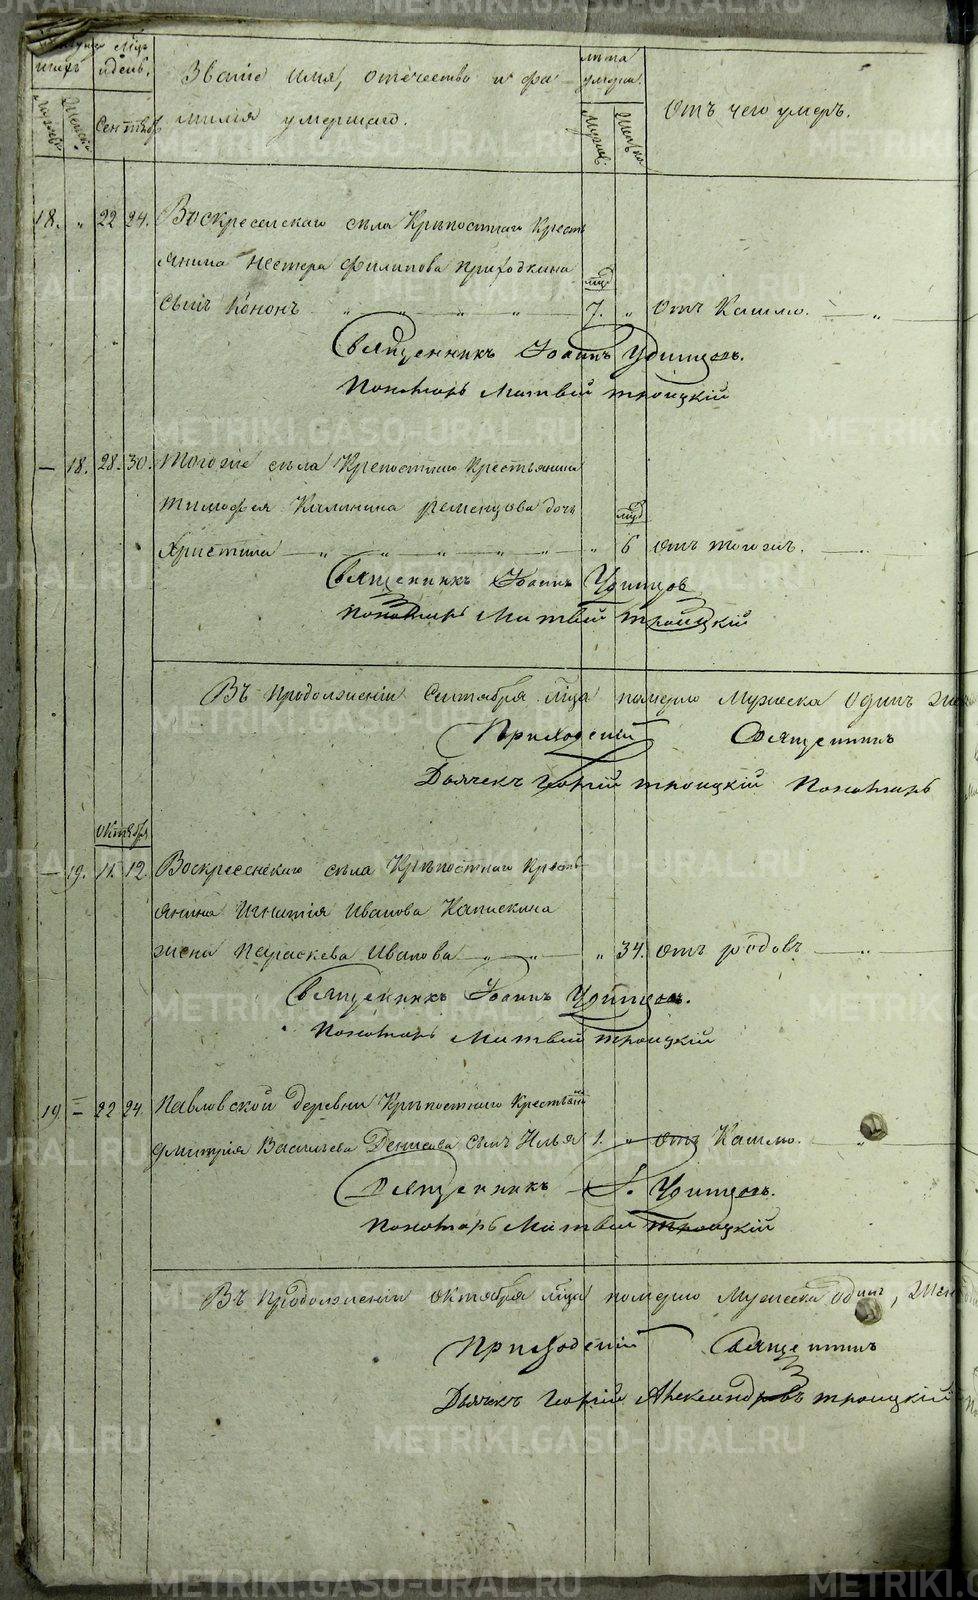 METRIKI.GASO-URAL.RU
Званіе имя, отечество и фа
милія умершаго.
лѣта
Отъ чего умеръ.
и день.
Сентябр
18. " 22 24. Воскресенскаго села Крѣпостнаго Кресть
янина Нестера Филипова Приходкина
сынъ Кононъ 7. " отъ Кашлю.
Священникъ Іоаннъ Удинцовъ.
Пономарь Матвій Троицкій
— 18. 28. 30. Тогоже села Крепостнаго Крестьянина
Тимофея Калинина Ременцова дочь
Христина " 6 отъ тогожъ.
Священникъ Іоаннъ Удинцов
Пономарь Матвій Троицкій
Въ продолженіи Сентября м̃ца померло Мужеска одинъ
Приходскій Священникъ
Дьячекъ Георгій Троицкій Пономарь
Октября
— 19. 11. 12. Воскресенскаго села Крѣпостнаго Кресть
янина Игнатія Иванова Капискина
жена Параскева Иванова " 34. отъ родовъ
Священникъ Іоаннъ Удинцовъ.
Пономарь Матвій Троицкій
19 — 22 24. Павловской деревни Крѣпостнаго Крестьянина
Дмитрія Васильева Денисова сынъ Илья 1. " отъ Кашлю.
Священникъ І. Удинцовъ.
Пономарь Матвій Троицкій
Въ продолженіи Октября м̃ца померло Мужеска одинъ,
Приходскій Священникъ
Дьячекъ Георгій Александровъ Троицкій